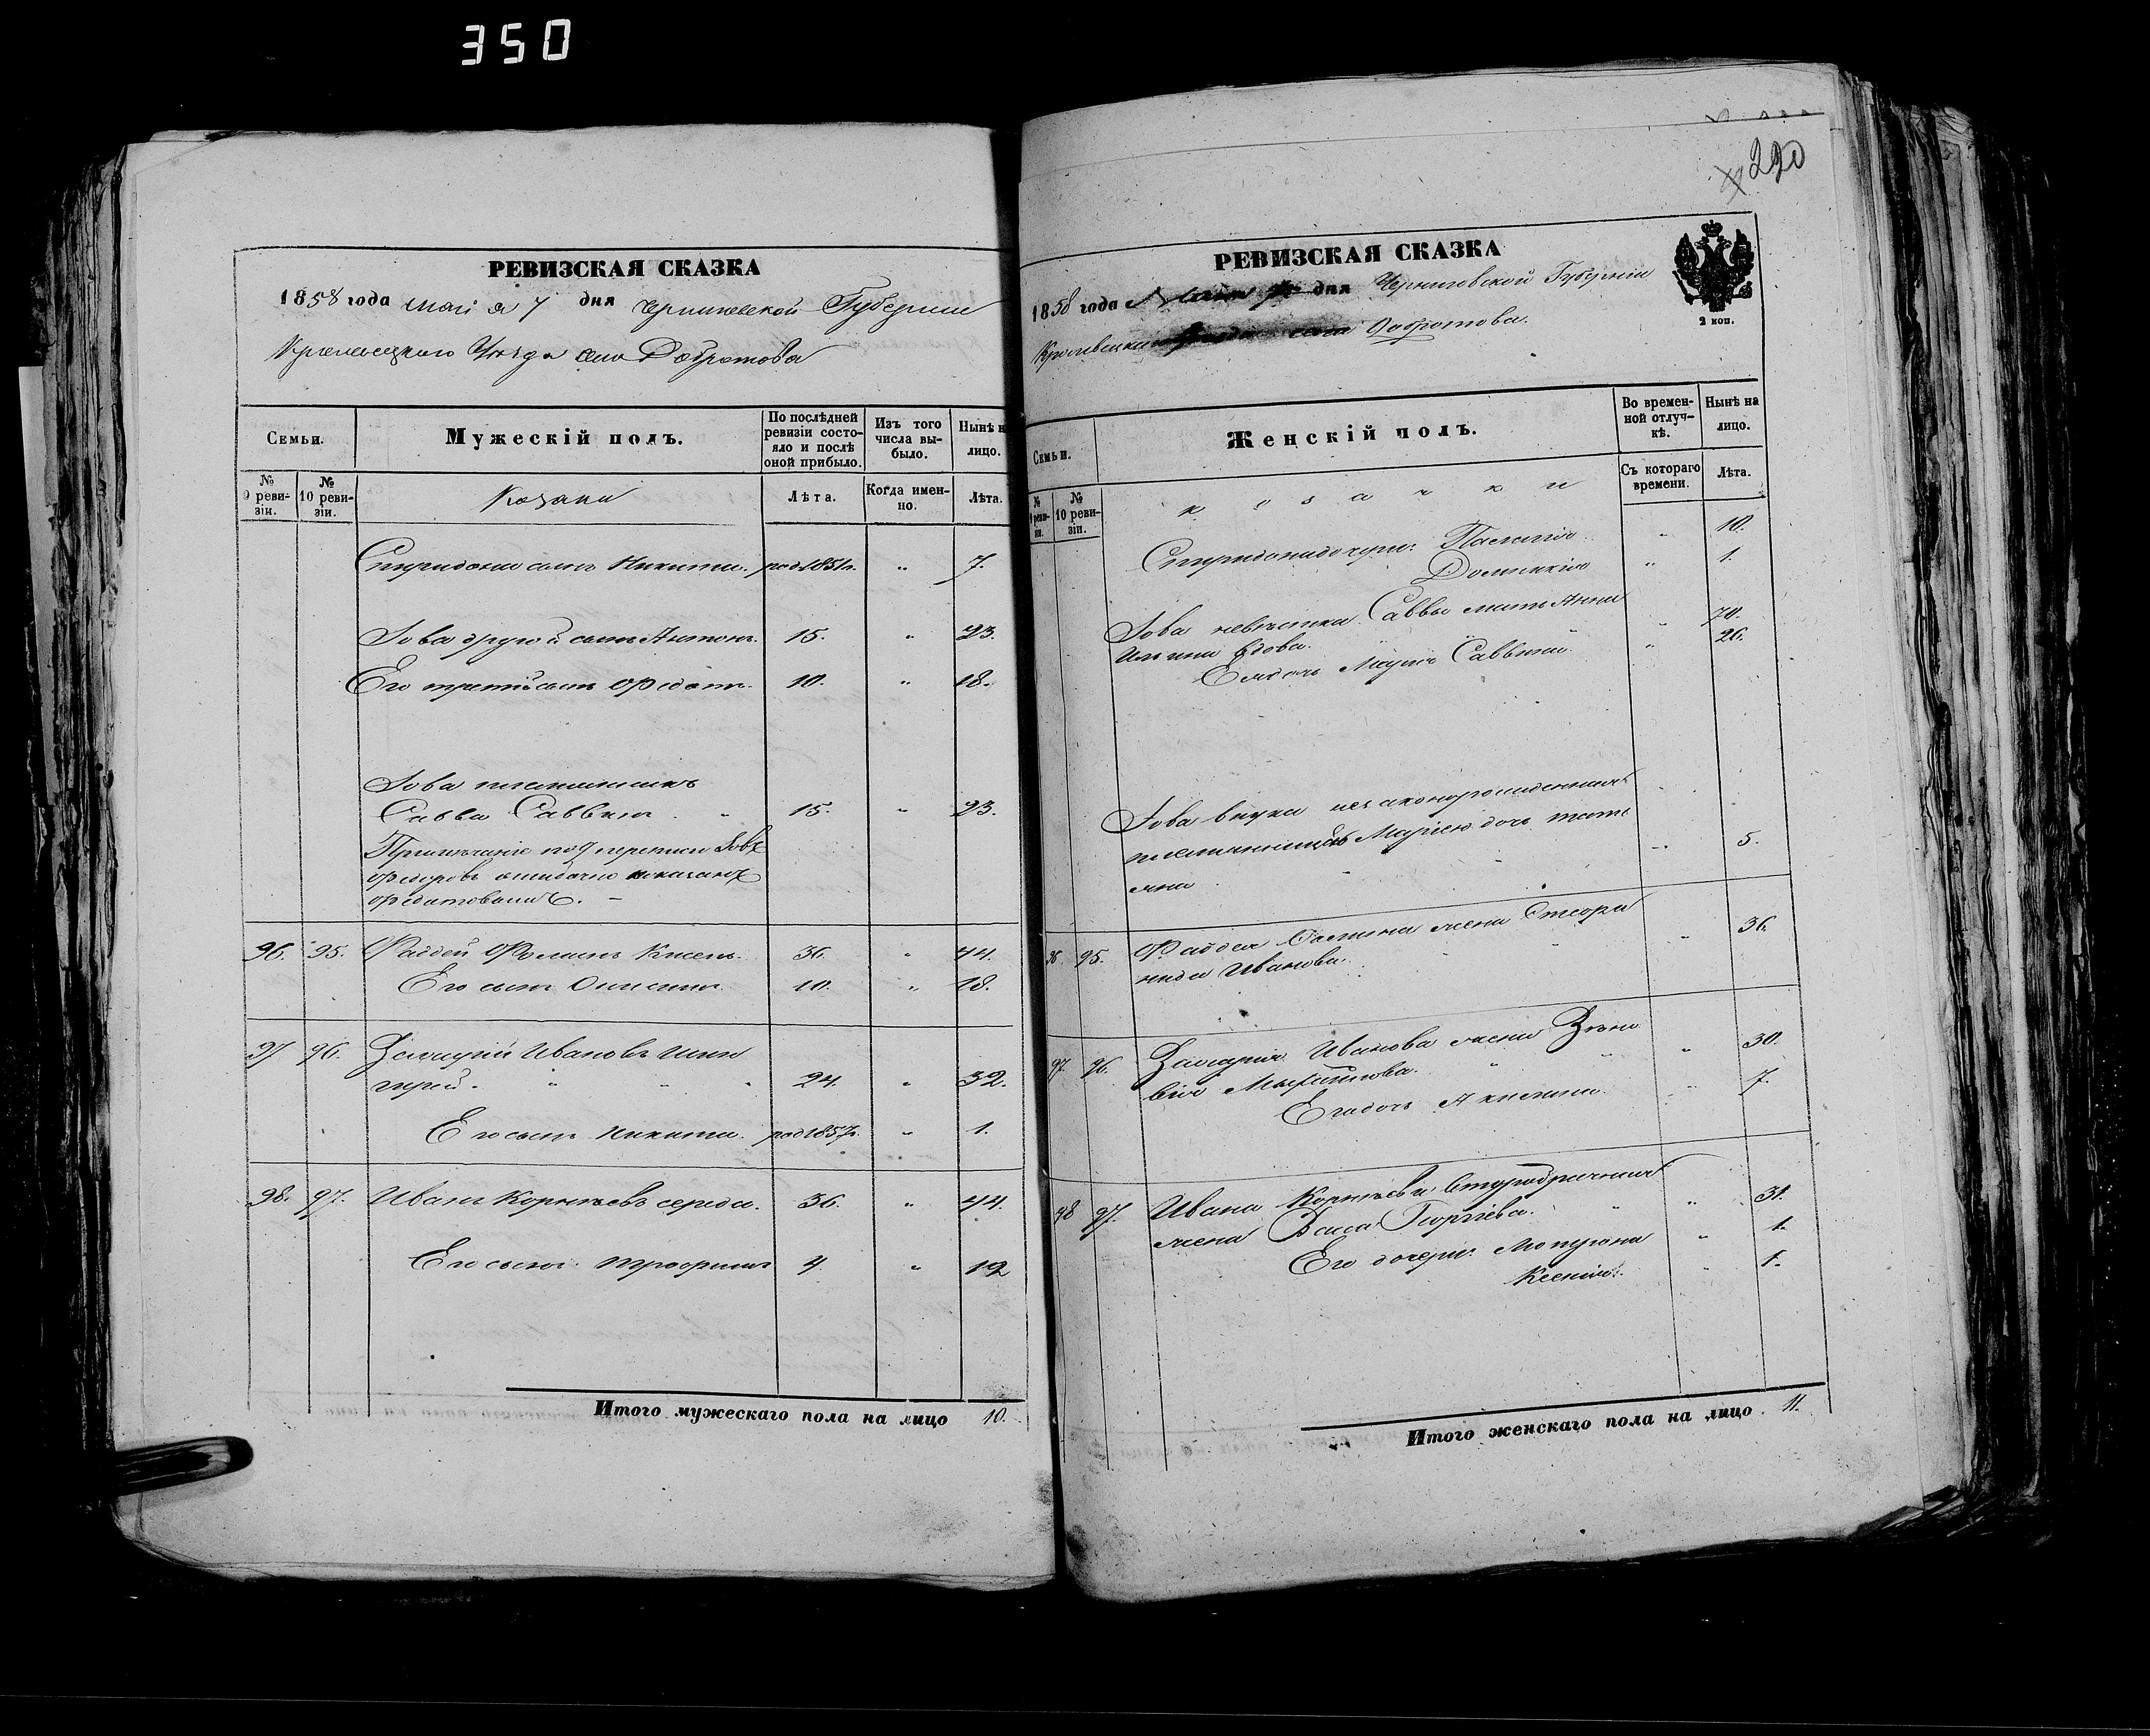 350
290
РЕВИЗСКАЯ СКАЗКА
1858 года Маія 7 дня Черниговской Губерніи
Кролевецкаго Уѣзда села Добротова
Семьи.
Мужескій полъ.
По послѣдней ревизіи состояло и послѣ оной прибыло.
Изъ того числа выбыло.
Нынѣ на лицо.
№ 9 ревизіи.
№ 10 ревизіи.
Козаки
Лѣта.
Когда именно.
Лѣта.
Спиридона сынъ Никита. род 1851 г. " 7.
другой сынъ Антонъ. 15. " 23.
Его третій сынъ Федотъ. 10. " 18.
племянникъ
Савва Саввинъ. " 15. " 23.
Примѣчаніе по 9 переписи
ошибочно показанъ
96. 95. Фаддей Фоминъ Кисель. 36. " 44.
Его сынъ Онисимъ. 10. " 18.
97 96. Захарій Ивановъ
" " " 24. " 32.
Его сынъ Никита. род 1857 г. " 1.
98. 97. Иванъ Корнѣевъ середа. 36. " 44.
Его сынъ Трофимъ 4 " 12
Итого мужескаго пола на лицо 10.
РЕВИЗСКАЯ СКАЗКА
1858 года Маія дня Черниговской Губерніи
Кролевецкаго села Добротова.
2 коп.
Семьи.
Женскій полъ.
Во временной отлучкѣ.
Нынѣ на лицо.
№ 9 ревизіи.
№ 10 ревизіи.
козачки
Съ котораго времени.
Лѣта.
Спиридона дочери: Пелагія " 10.
Домникія " 1.
невѣстка Саввы мать Анна
Ильина вдова. " 70.
Ея дочь Марія Саввина. " 26.
внука незаконорожденная
племянницы Маріею дочь Татіана " 5.
96. 95. Фаддея Фомина жена Степанида Иванова. " 36.
97. 96. Захарія Иванова жена Зѣновія Михайлова. " 30.
Его дочь Акилина. " 7.
98 97. Ивана Корнѣева второбрачная
жена Васса Георгіева. " 31.
Его дочери: Мотрона " 1.
Ксенія. " 1.
Итого женскаго пола на лицо 11.